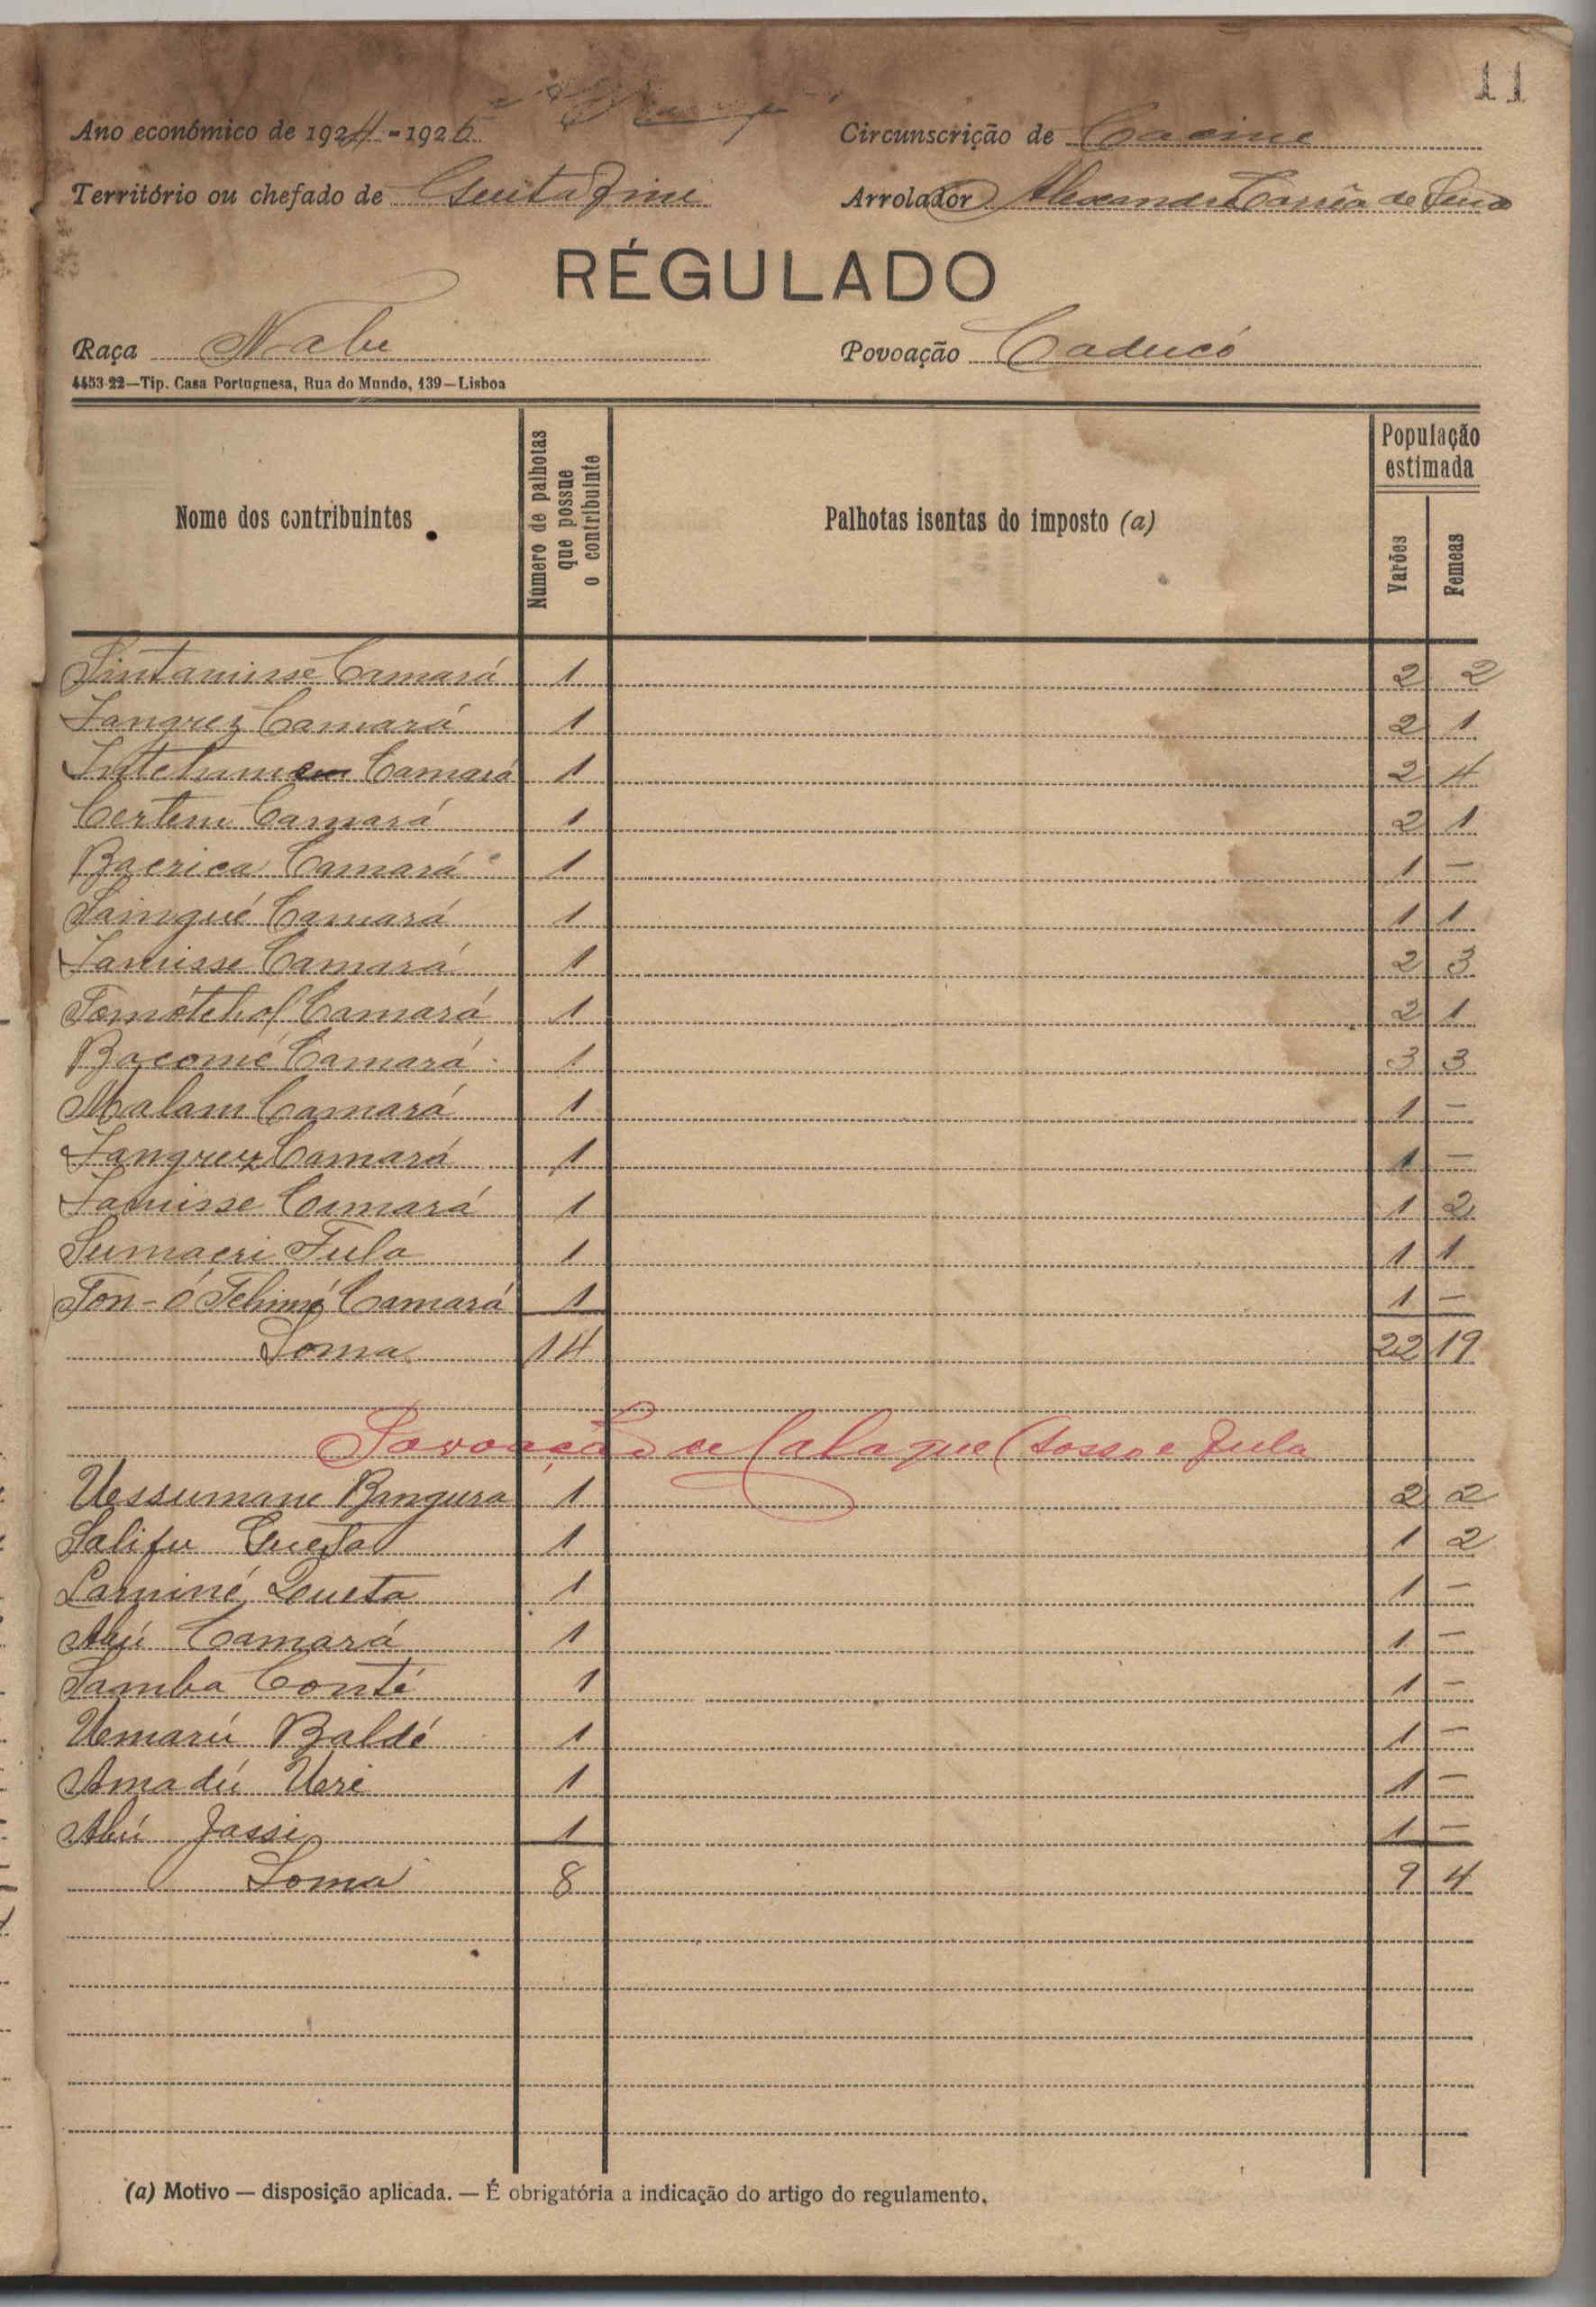 11
Ano económico de 1924-1925
Circunscrição de Cacine
Território ou chefado de Guitafine
Arrolador Alexandre Corrêa de Sena
RÉGULADO
Raça Nalu
Povoação Caducó
4453-22—Tip. Casa Portuguesa, Rua do Mundo, 139—Lisboa
Nome dos contribuintes
Número de palhotas que possue o contribuinte
Palhotas isentas do imposto (a)
População estimada
Varões
Femeas
Camará 1 2 2
Tangrez Camará 1 2 1
Camará 1 2 4
Certene Camará 1 2 1
Bacrica Camará 1 1 —
Saingué Camará 1 1 1
Tamisse Camará 1 2 3
Camará 1 2 1
Bacomé Camará 1 3 3
Malam Camará 1 1 —
Tangrez Camará 1 1 —
Tamisse Camará 1 1 2
Sumacri Fula 1 1 1
Ton-ó Camará 1 1 —
Soma 14 22 19
Povoação de Calaque (Sosso e Fula
Uessumane Bangura 1 2 2
Salifu Queta 1 1 2
Laminé Queta 1 1 —
Abú Camará 1 1 —
Samba Conté 1 1 —
Uemarú Baldé 1 1 —
Amadú Uri 1 1 —
Abú Jassi 1 1 —
Soma 8 9 4
(a) Motivo — disposição aplicada. — É obrigatória a indicação do artigo do regulamento.